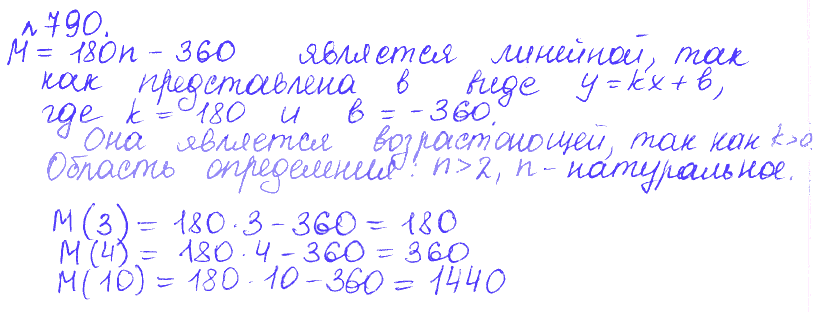 №790.
M = 180n - 360 является линейной, так
как представлена в виде y = kx + b,
где k = 180 и b = -360.
Она является возрастающей, так как k>0
Область определения: n>2, n - натуральное.
M(3) = 180·3 - 360 = 180
M(4) = 180·4 - 360 = 360
M(10) = 180·10 - 360 = 1440